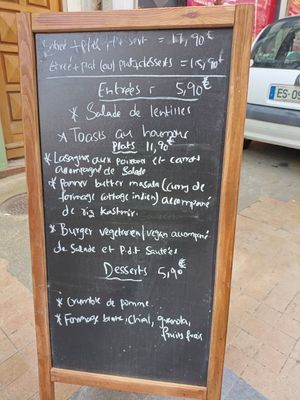 Entrée + plat + dessert = 17,90€
Entrée + plat (ou) plat + desserts = 15,90€
Entrées : 5,90€
* Salade de lentilles
* Toasts au houmous
Plats 11,90€
* Lasagne aux poireaux et carottes
accompagné de Salade
* panner butter masala (curry de
fromage cottage indien) accompané
de riz kashmir.
* Burger vegetarien/vegan accompané
de Salade et P.d.t Sautées
Desserts 5,90€
* Crumble de pomme.
* Fromage blanc, chia, granola,
fruits frais
ES-09